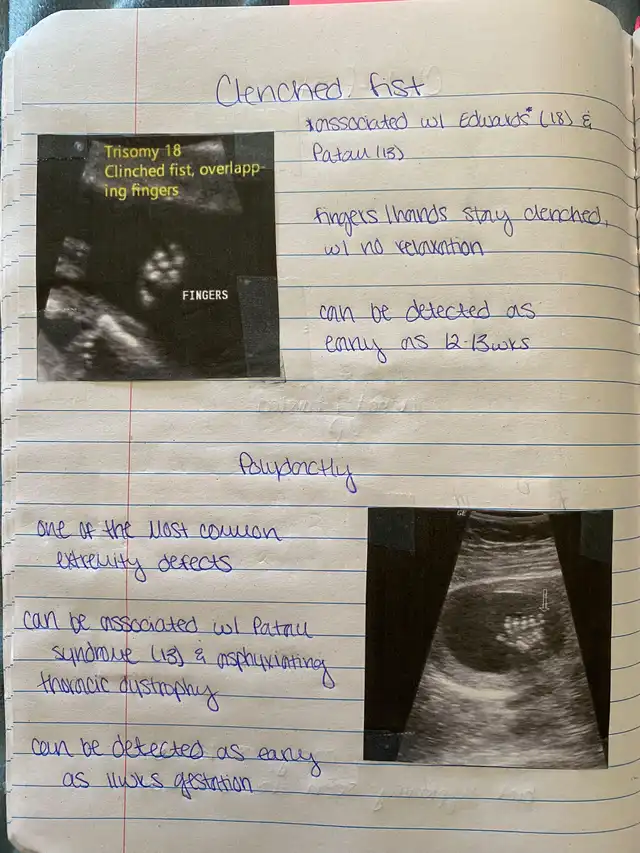 Clenched fist
Trisomy 18
Clinched fist, overlapp-
ing fingers
FINGERS
*associated w/ Edwards* (18) &
Patau (13)
fingers/hands stay clenched
w/ no relaxation
can be detected as
early as 12-13wks
Polydactly
one of the most common
extremity defects
can be associated w/ Patau
syndrome (13) & asphyxiating
thoracic dystrophy
can be detected as early
as 11wks gestation
GE